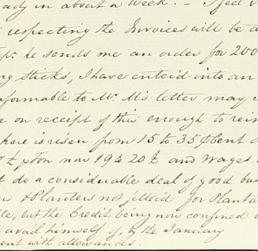 ady in about a Week. – I feel
respecting the Invoices will be a
he sends me an order for 200
ng sticks, I have enterd into an
formable to Mr. M's letter may
e on receipt of this enough to rein
is risen from 15 to 35 ⅌Cent
now 19 & 20 and Wages
do a considerable deal of good bus
& Planters not jetted for Planta
le, but the Credit being now confined
avail himself of, by the January
ent with allowances.